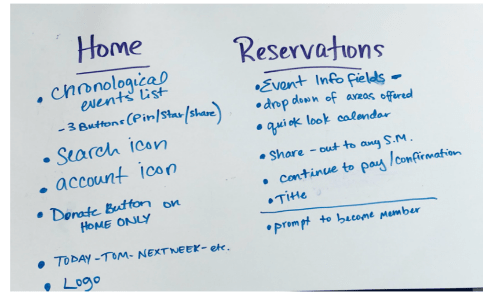 Home
• Chronological
events List
- 3 Buttons (Pin/Star/share)
• Search icon
• account icon
• Donate Button on
HOME ONLY
• TODAY - TOM - NEXT WEEK - etc.
• Logo
Reservations
• Event Info Fields -
• drop down of areas offered
• quick look calendar
• Share - out to any S.M.
• continue to pay/confirmation
• Title
• prompt to become member